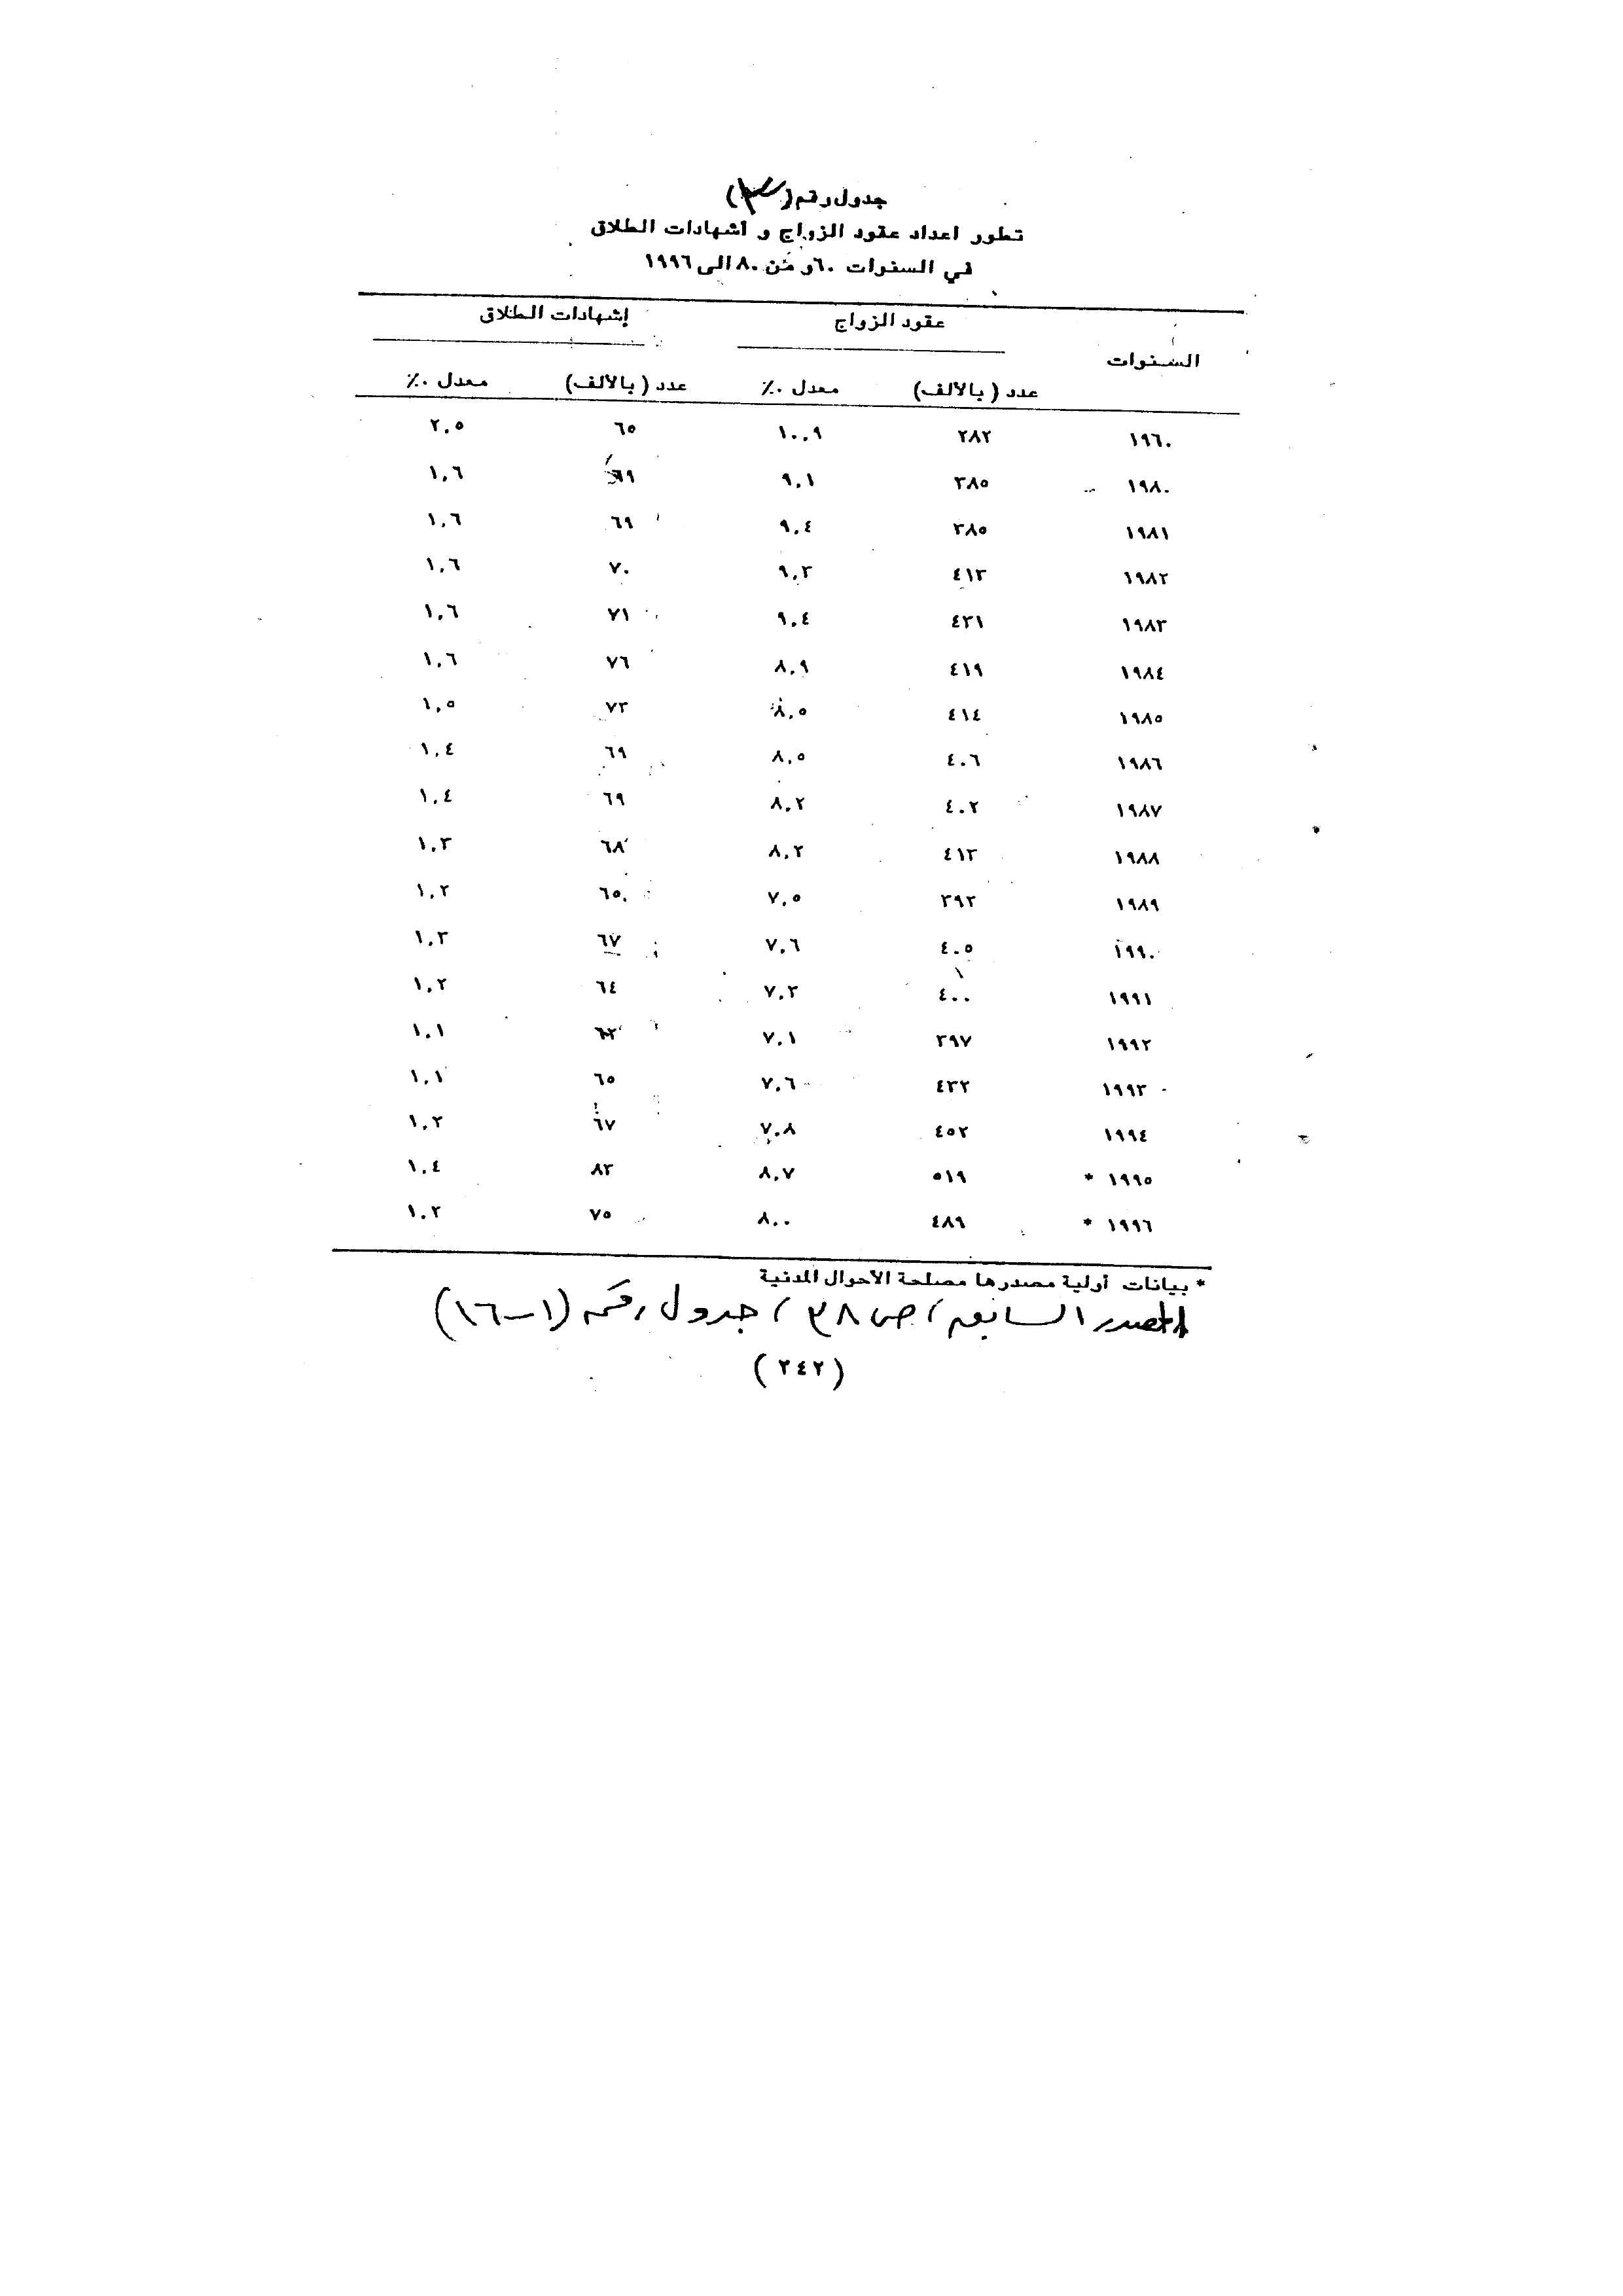 جدول رقم (٣)
تطور اعداد عقود الزواج و اشهادات الطلاق
في السنوات ٦٠ و من ٨٠ الى ١٩٩٦
السنوات عقود الزواج إشهادات الطلاق
عدد (بالألف) معدل ٠٪ عدد (بالألف) معدل ٠٪
١٩٦٠ ٢٨٢ ١٠,٩ ٦٥ ٢,٥
١٩٨٠ ٣٨٥ ٩,١ ٦٩ ١,٦
١٩٨١ ٣٨٥ ٩,٤ ٦٩ ١,٦
١٩٨٢ ٤١٣ ٩,٣ ٧٠ ١,٦
١٩٨٣ ٤٣١ ٩,٤ ٧١ ١,٦
١٩٨٤ ٤١٩ ٨,٩ ٧٦ ١,٦
١٩٨٥ ٤١٤ ٨,٥ ٧٣ ١,٥
١٩٨٦ ٤٠٦ ٨,٥ ٦٩ ١,٤
١٩٨٧ ٤٠٢ ٨,٢ ٦٩ ١,٤
١٩٨٨ ٤١٣ ٨,٢ ٦٨ ١,٣
١٩٨٩ ٣٩٢ ٧,٥ ٦٥ ١,٢
١٩٩٠ ٤٠٥ ٧,٦ ٦٧ ١,٣
١٩٩١ ٤٠٠ ٧,٣ ٦٤ ١,٢
١٩٩٢ ٣٩٧ ٧,١ ١,١
١٩٩٣ ٤٣٢ ٧,٦ ٦٥ ١,١
١٩٩٤ ٤٥٢ ٧,٨ ٦٧ ١,٢
١٩٩٥ * ٥١٩ ٨,٧ ٨٣ ١,٤
١٩٩٦ * ٤٨٩ ٨,٠ ٧٥ ١,٢
* بيانات أولية مصدرها مصلحة الأحوال المدنية
المصدر السابق، ص ٣٨، جدول رقم (١-١٦)
(٢٤٢)